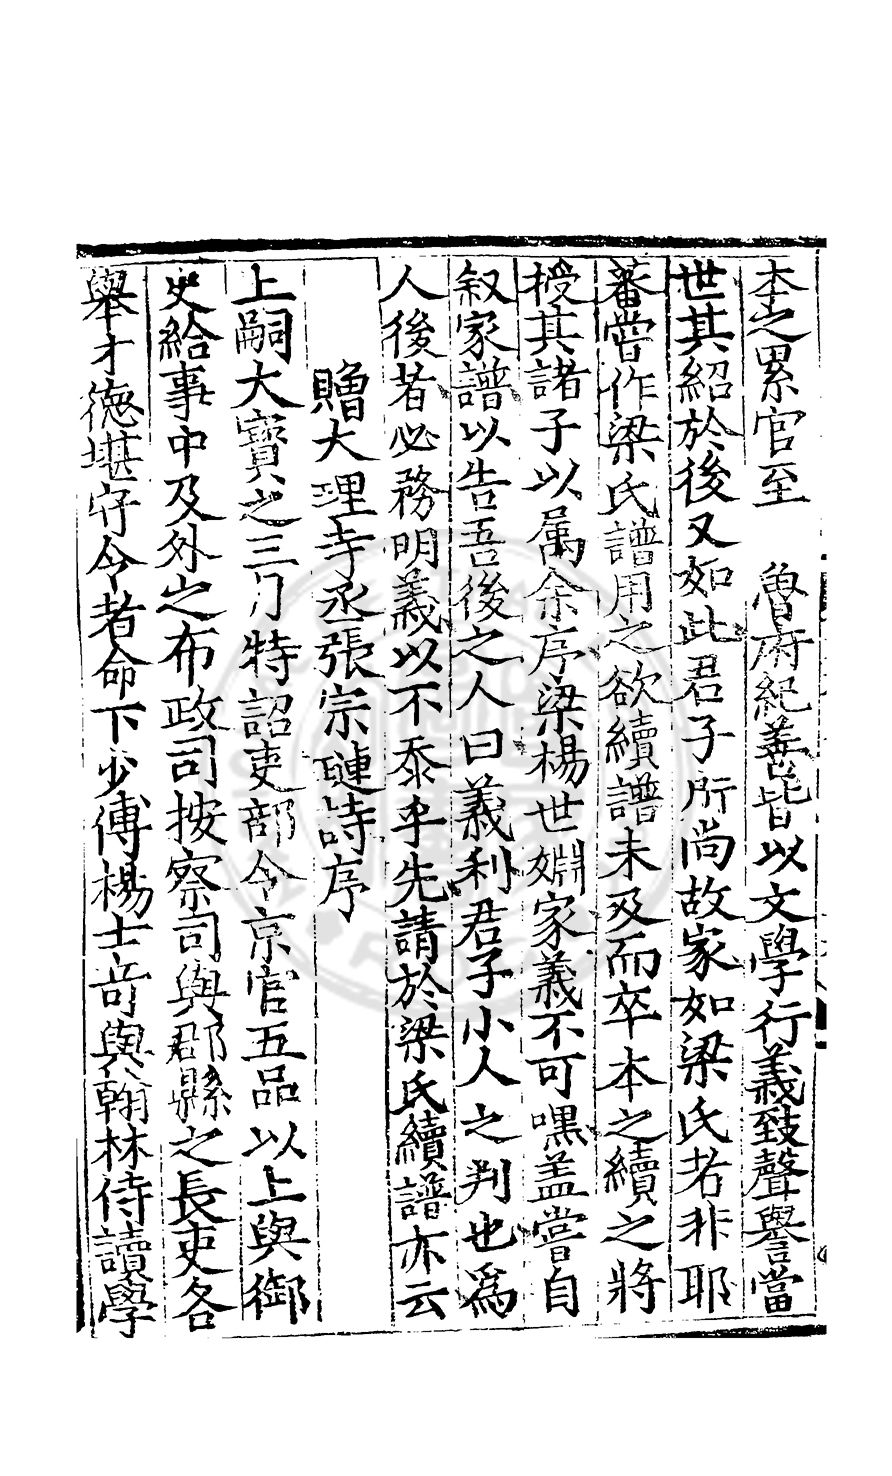 本之累官至　魯府紀善皆以文學行義致聲譽當
世其紹於後又如此君子所尚故家如梁氏者非耶
蕃嘗作梁氏譜用之欲續譜未及而卒本之續之將
授其諸子以属余序梁楊世婣家義不可嘿盖嘗自
叙家譜以告吾後之人曰義利君子小人之判也為
人後者必務明義以不忝乎先請於梁氏續譜亦云
贈大理寺丞張宗璉詩序
上嗣大寶之三月特詔吏部令京官五品以上與御
史給事中及外之布政司按察司與郡縣之長吏各
舉才德堪守令者命下少傅楊士竒與翰林侍讀學